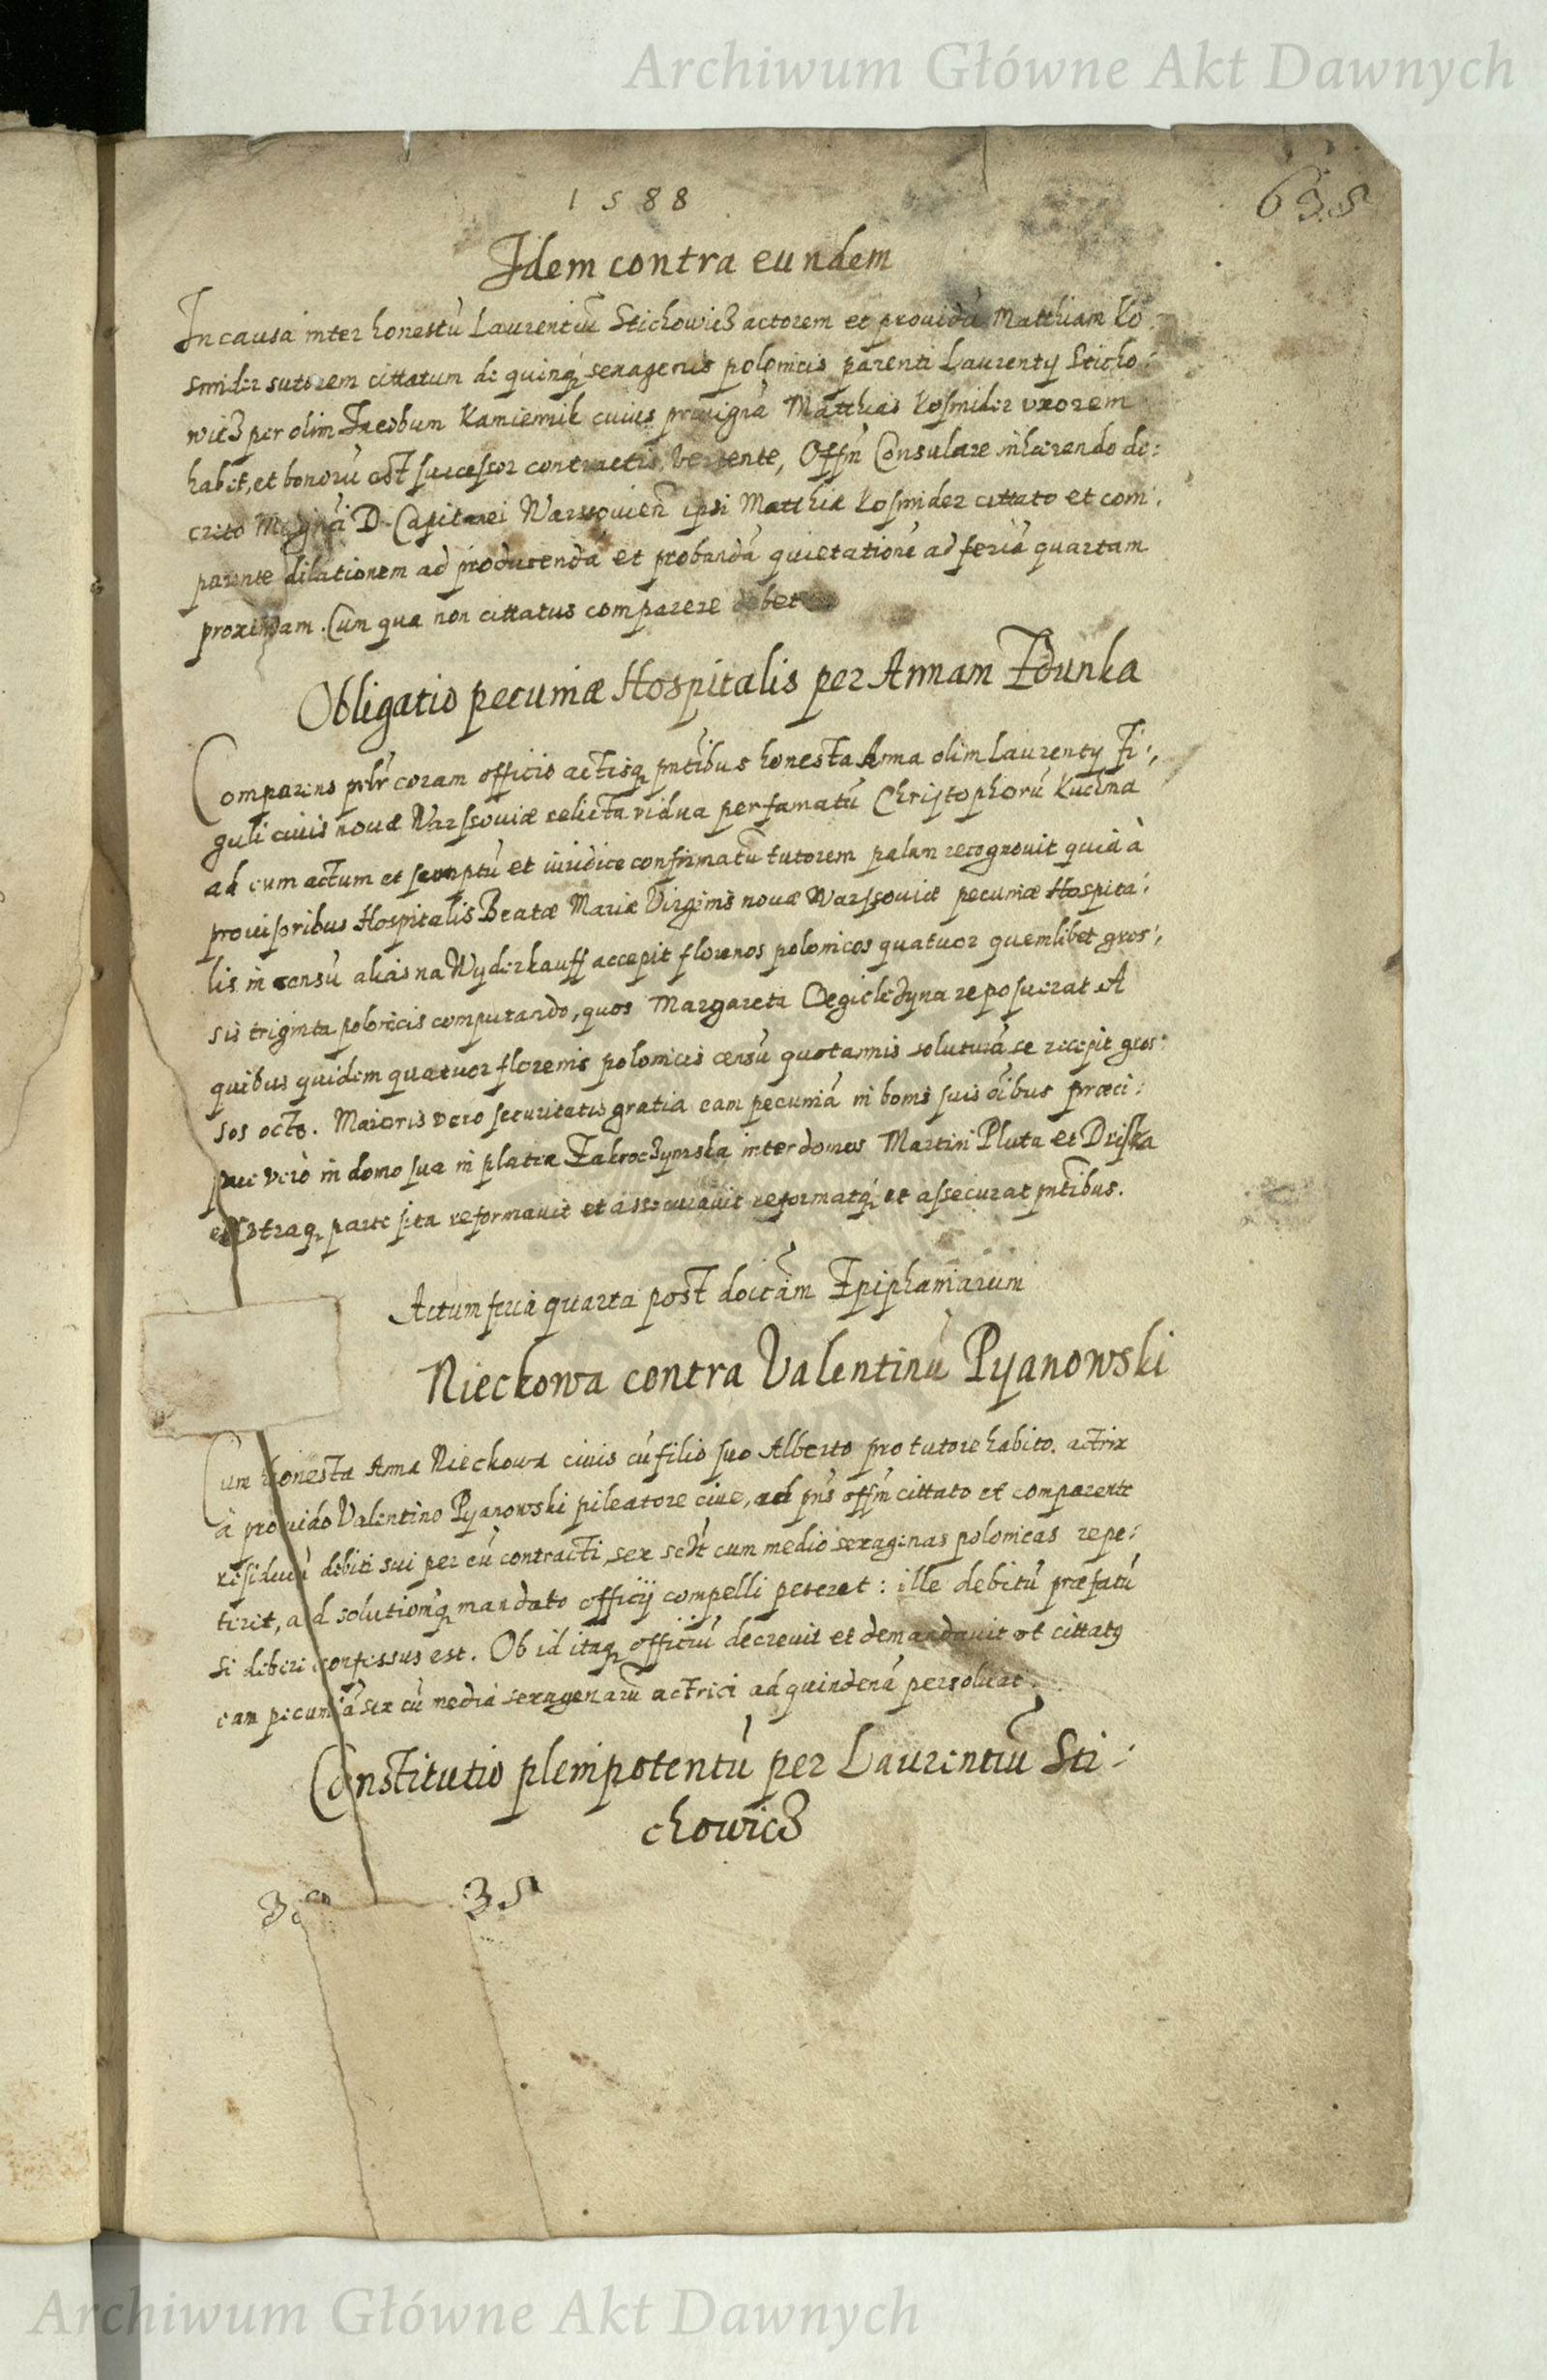 Archiwum Główne Akt Dawnych
1588
635
Idem contra eundem
In causa inter honestū Laurentiū Stichowicz actorem et prouidū Matthiam Ko:
smider sutorem cittatum de quinq sexagenis polonicis parenti Laurenty Sticho:
wicz per olim Jacobum Kamiennik cuius priuignā Matthias Kosmider uxorem
habet, et bonorū est successor contractis, vertente, Offm Consulare inhærendo de:
creto Mag D. Capitanei Warssouien ipsi Matthiæ Kosmider cittato et com:
parente dilationem ad producendā et probandā quietationē ad feriā quartam
proximam. Cum qua non cittatus comparere debet
Obligatio pecuniæ Hospitalis per Annam Zdunka
Comparens plr coram officio actisq pntibus honesta Anna olim Laurenty Fi:
guli ciuis nouæ Warssouiæ relicta vidua per famatū Christophorū Kuchna
ad eum actum et et iuridice confirmatū tutorem palam recognouit quia à
prouisoribus Hospitalis Beatæ Mariæ Virginis nouæ Warssouiæ pecuniæ Hospita:
lis in censū aliàs na Wyderkauff accepit florenos polonicos quatuor quemlibet gros:
sis triginta polonicis computando, quos Margareta reposuerat A
quibus quidem quatuor florenis polonicis censū quotannis soluturā se recepit gros:
sos octo. Maioris vero securitatis gratia eam pecuniā in bonis suis oibus præci:
pue verò in domo sua in platea Zakroczymska inter domos Martini Pluta et
ex vtraq parte sita reformauit et assecurauit reformatq et assecurat pntibus.
Actum feria quarta post doicam Epiphaniarum
Nieckowa contra Valentinū Pyanowski
Cum honesta Anna Nieckowa ciuis cū filio suo Alberto pro tutore habito. actrix
à prouido Valentino Pyanowski pileatore ciue, ad pns offm cittato et comparente
residuū debiti sui per eū contracti, sex sclt cum medio sexagenas polonicas repe:
tierit, ad solutionēq mandato officij compelli peteret: ille debitū præfatū
se debere confessus est. Ob id itaq officiū decreuit et demandauit vt cittatus
eam pecuniā sex cū media sexagenarū actrici ad quindenā persoluat.
Constitutio plenipotentū per Laurentiū Sti:
chowicz
35
Archiwum Główne Akt Dawnych